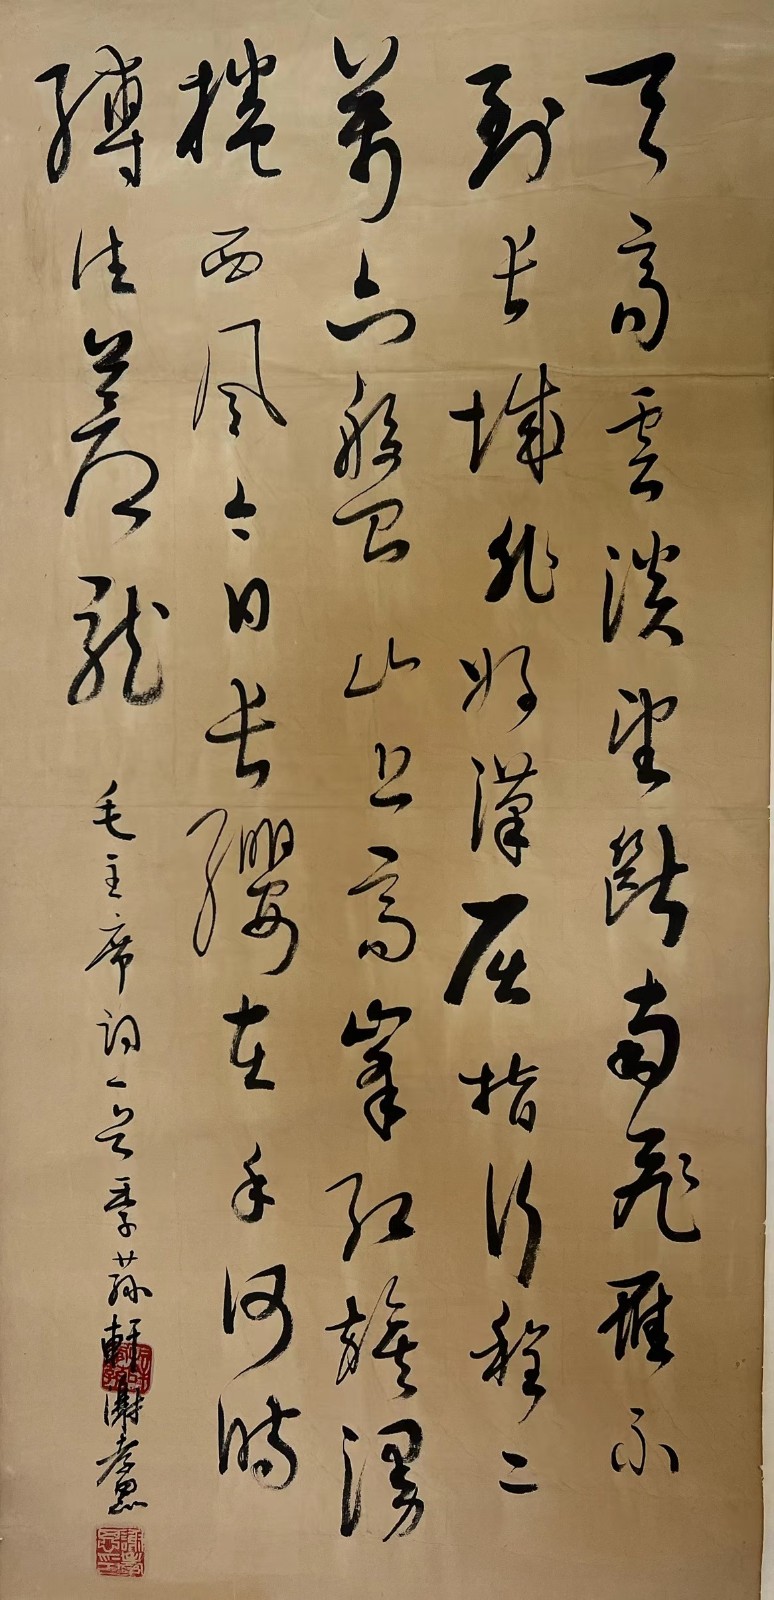 天高雲淡望斷南飛雁不
到長城非好漢屈指行程二
萬六盤山上高峯紅旗漫
捲西風今日長纓在手何時
縛住蒼龍
毛主席詞一首季蓀軒謝孝思
謝孝思印